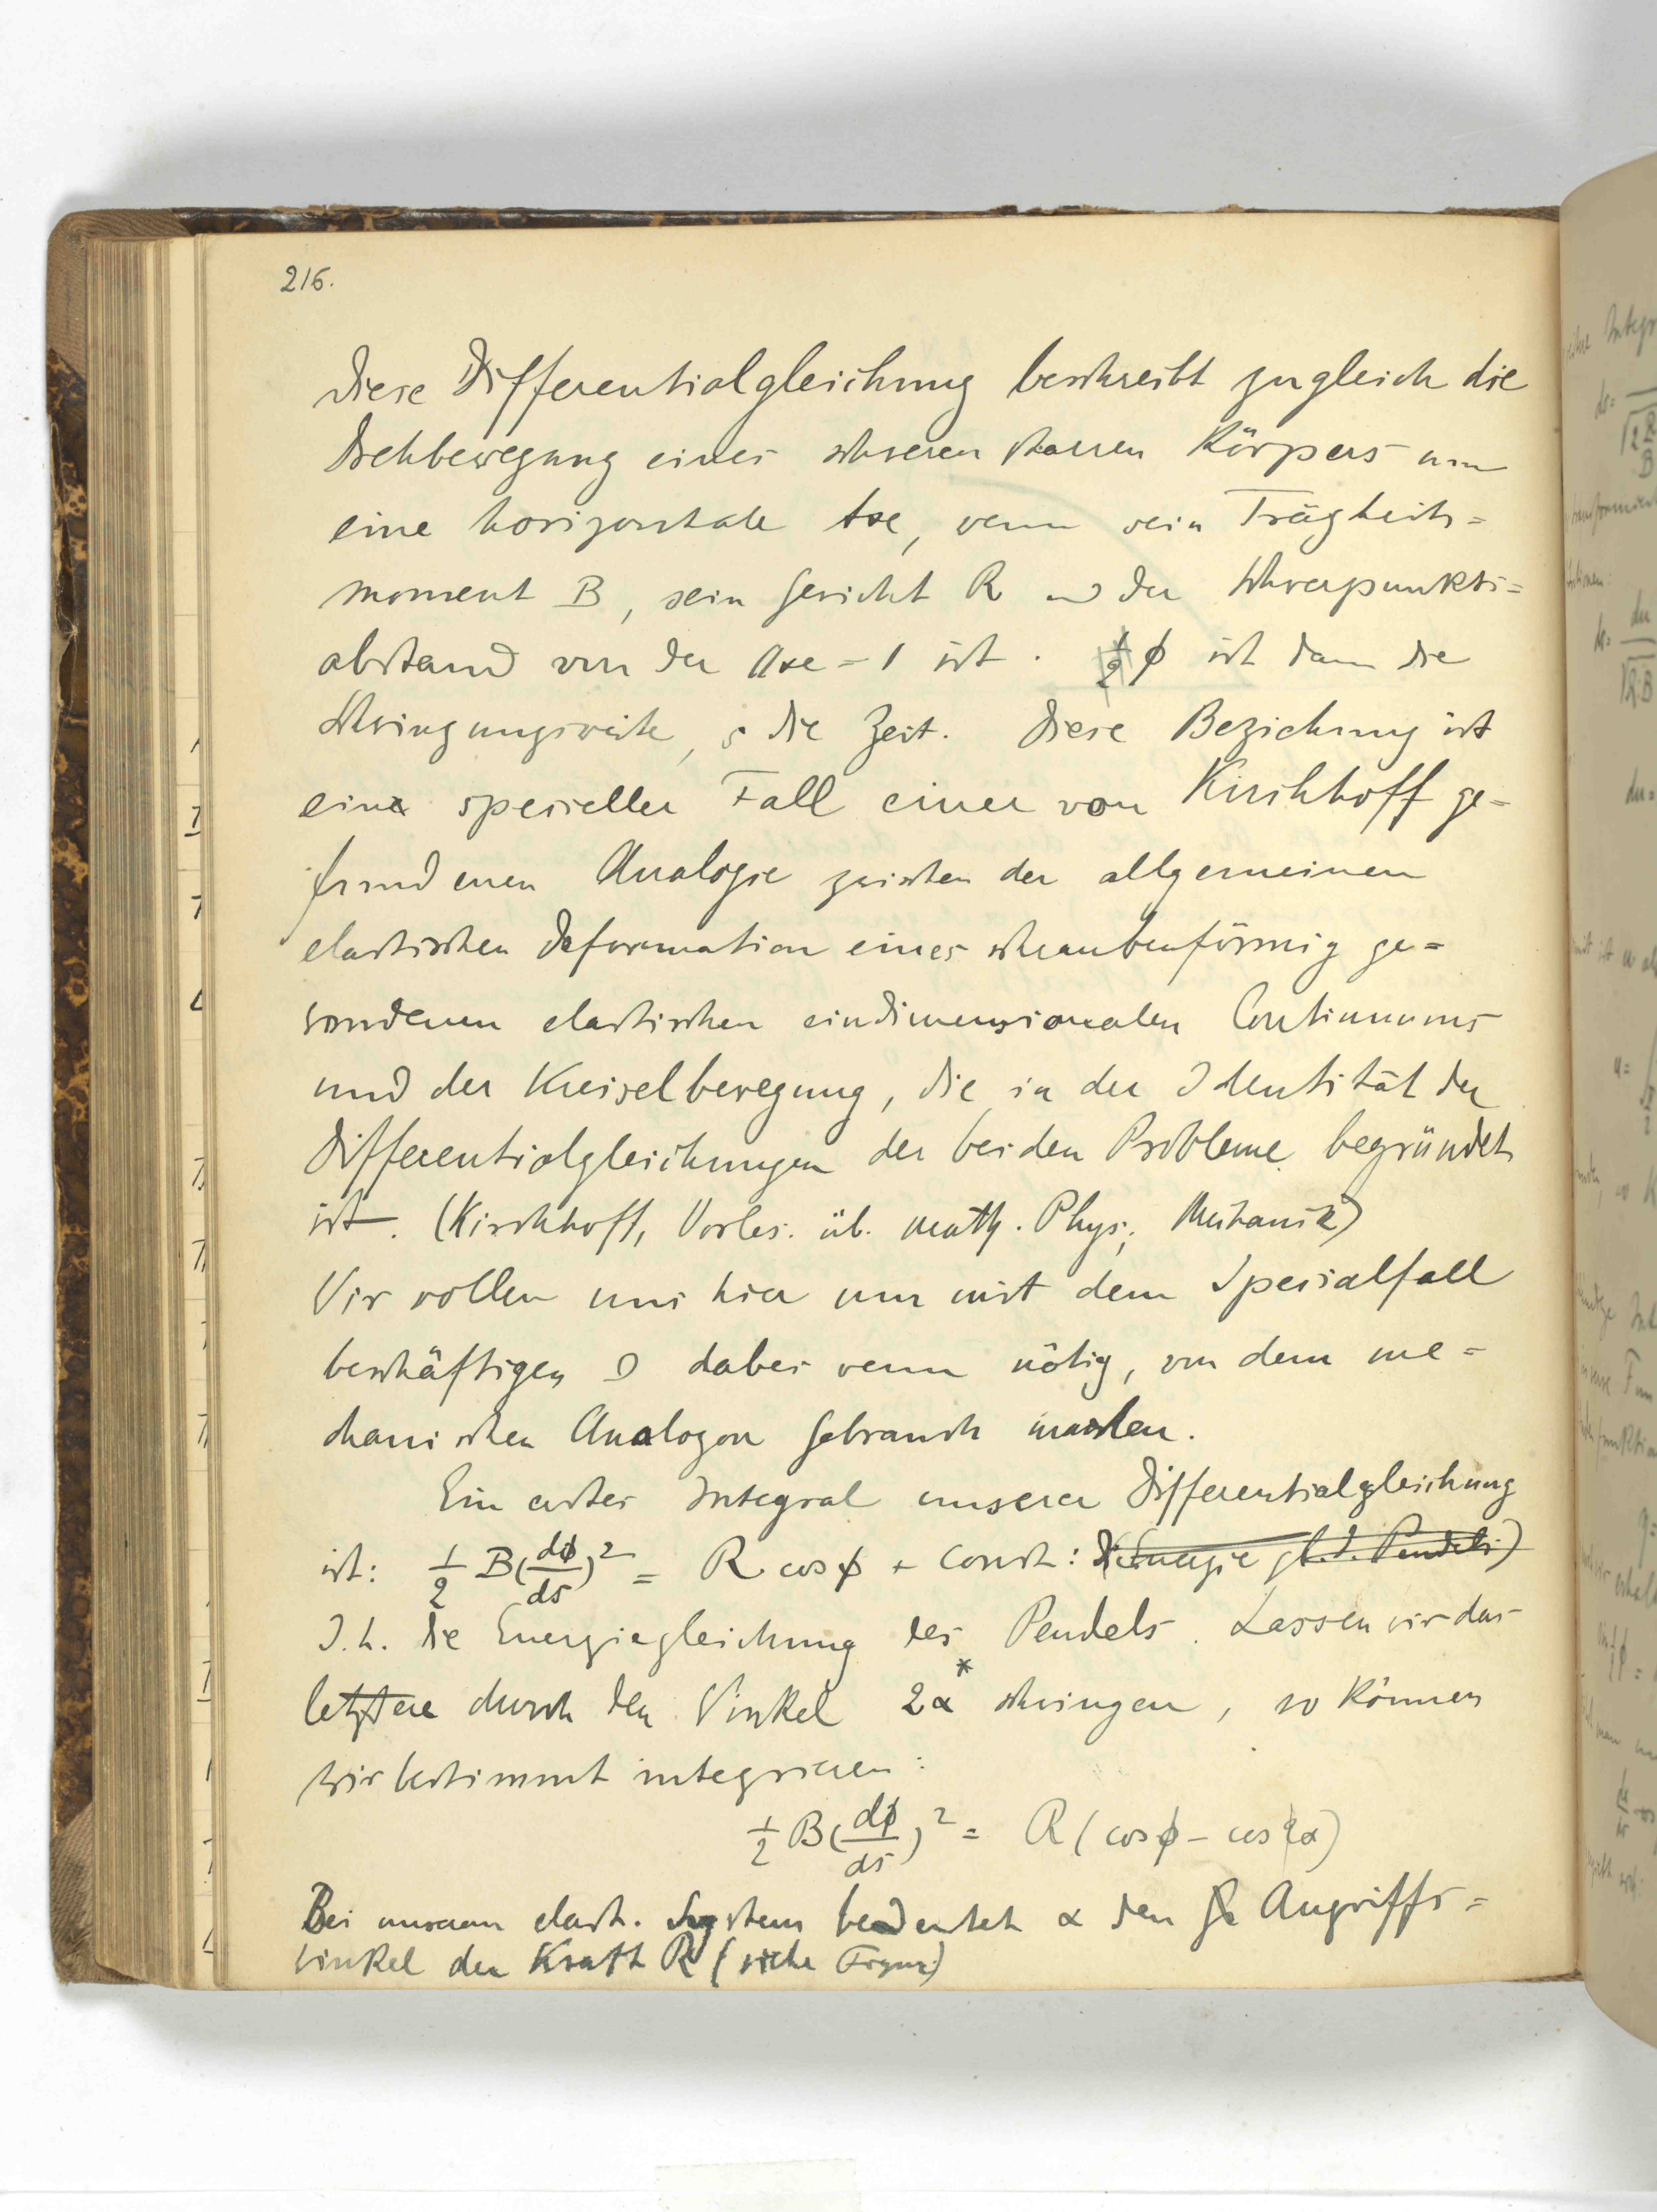 216.
Diese Differentialgleichung beschreibt zugleich die
Drehbewegung eines schweren starren Körpers um
eine horizontale Axe, wenn sein Trägheits=
moment B, sein Gewicht R und der Schwerpunkts=
abstand von der Axe = 1 ist. ϕ ist dann die
Schwingungsweite, s die Zeit. Diese Beziehung ist
ein spezieller Fall einer von Kirchhoff ge=
fundenen Analogie zwischen der allgemeinen
elastischen Deformation eines schraubenförmig ge=
wundenen elastischen eindimensionalen Continuums
und der Kreiselbewegung, die in der Identität der
Differentialgleichungen der beiden Probleme begründet
ist. (Kirchhoff, Vorles. üb. math. Phys., Mechanik)
Wir wollen uns hier nur mit dem Spezialfall
beschäftigen u dabei wenn nötig, von dem me=
chanischen Analogon Gebrauch machen.
Ein erstes Integral unserer Differentialgleichung
ist: 1/2 B(dϕ/ds)² = R cos ϕ + Const: (Energiegl. d. Pendels)
d.h. die Energiegleichung des Pendels. Lassen wir das
letztere durch den Winkel 2α* schwingen, so können
wir bestimmt integrieren:
1/2 B(dϕ/ds)² = R(cos ϕ − cos α)
Bei unserem elast. System bedeutet α den Angriffs=
winkel der Kraft R (siehe Figur)